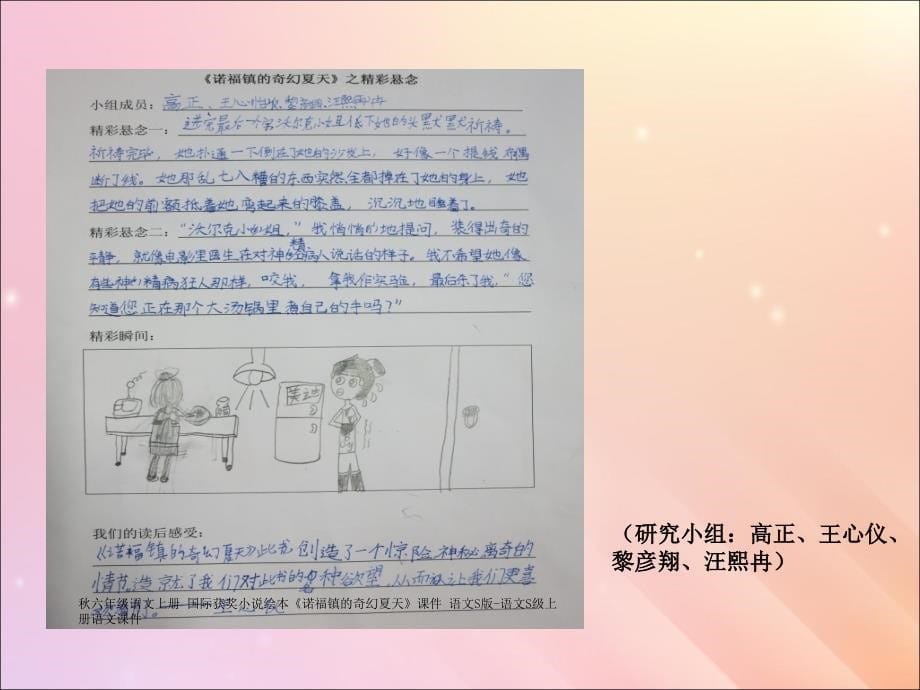 《诺福镇的奇幻夏天》之精彩悬念
小组成员：高正、王心怡、黎彦翔、汪熙冉
精彩悬念一：进完最后一 沃尔克小姐低下她的头默默祈祷。
祈祷完毕，她扑通一下倒在了她的沙发上，好像一个提线木偶
断了线。她那乱七八糟的东西突然全都掉在了她的身上，她
把她的前额抵着她弯起来的膝盖，沉沉地睡着了。
精彩悬念二：“沃尔克小姐，”我悄悄的地提问，装得出奇的
平静，就像电影里医生在对神经精病人说话的样子。我不希望她像
有些神精病狂人那样，咬我，拿我作实验，最后杀了我，“您
知道您正在那个大汤锅里煮自己的手吗？”
精彩瞬间：
美的
我们的读后感受：
《诺福镇的奇幻夏天》此书创造了一个惊险、神秘离奇的
情节。造就了我们对此书的各种欲望，从而放让我们更喜
秋六年级语文上册-国际获奖小说绘本《诺福镇的奇幻夏天》课件 语文S版-语文S级上
册语文课件
（研究小组：高正、王心仪、
黎彦翔、汪熙冉）